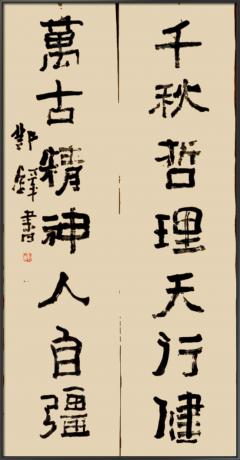 千秋哲理天行健
萬古精神人自疆
鄧鐸書